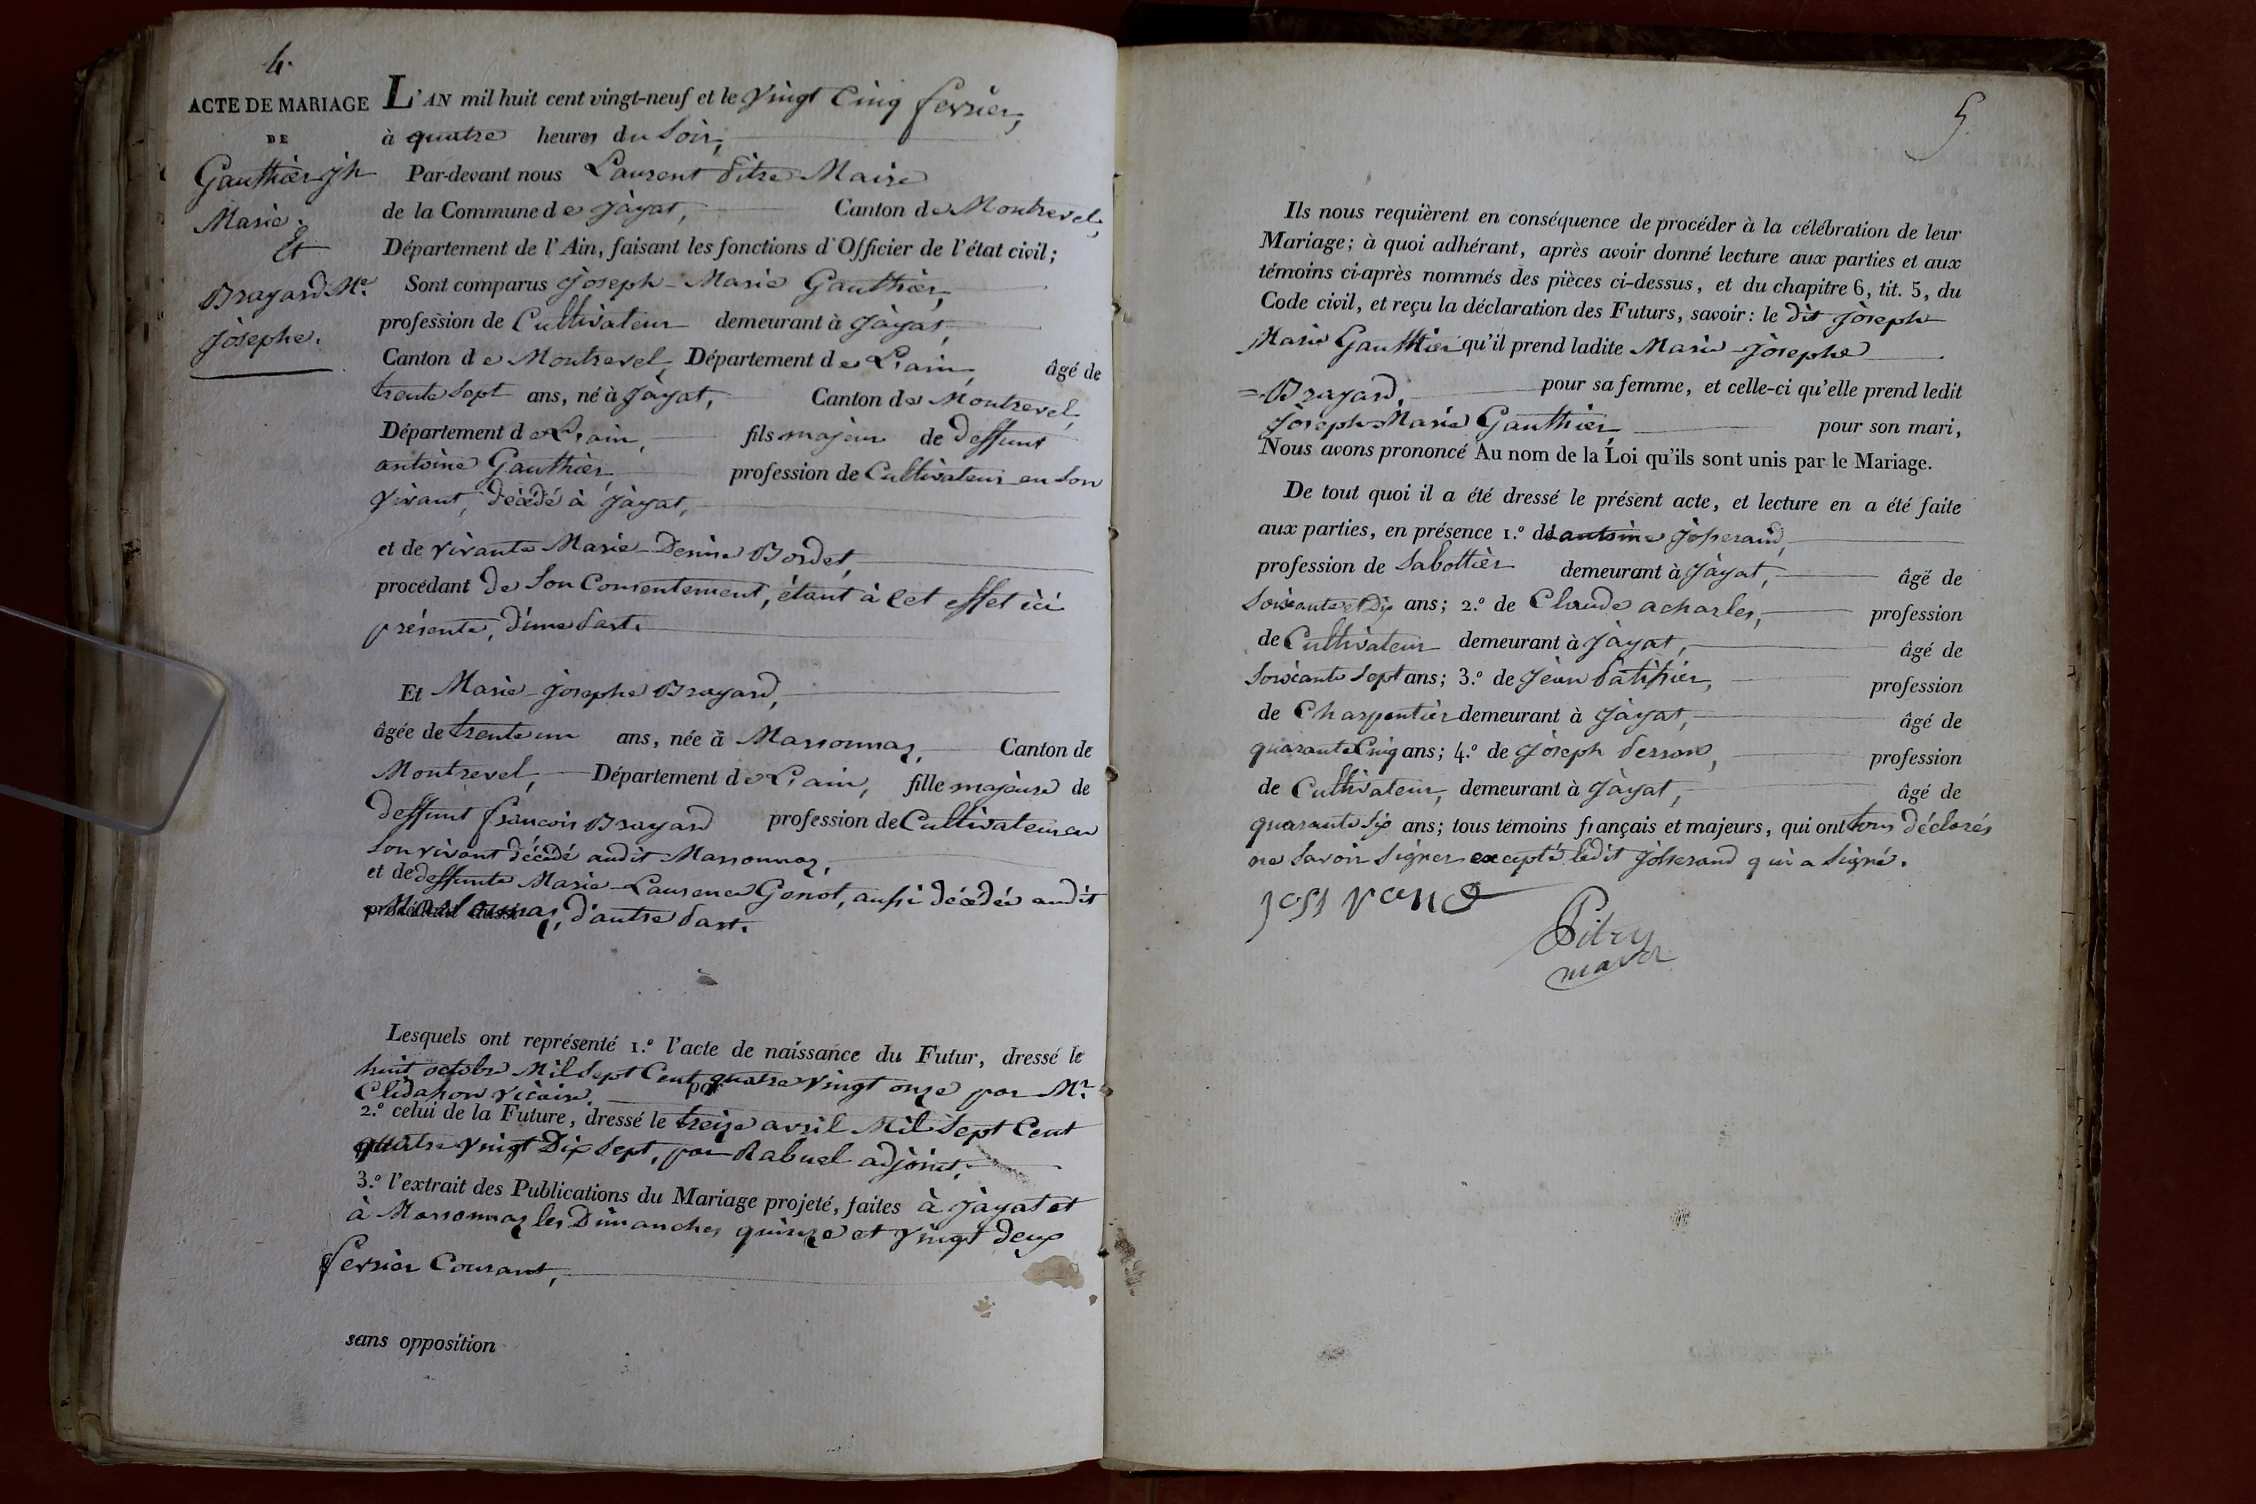 4.
ACTE DE MARIAGE
DE
Gauthier jh
Marie.
Et
Brayard Mie
Josephe.
L'AN mil huit cent vingt-neuf et le vingt cinq fevrier,
à quatre heures du soir,
Par-devant nous Laurent Pitre Maire
de la Commune de Jayat, Canton de Montrevel,
Département de l'Ain, faisant les fonctions d'Officier de l'état civil;
Sont comparus Joseph-Marie Gauthier,
profession de Cultivateur demeurant à Jayat,
Canton de Montrevel, Département de L'ain, âgé de
trente sept ans, né à Jayat, Canton de Montrevel,
Département de L'ain, fils majeur de deffunt
antoine Gauthier, profession de Cultivateur en son
vivant, décédé à Jayat,
et de vivante Marie-Denise Bordet,
procédant de son Consentement, étant à cet effet ici
présente, d'une part.
Et Marie-Josephe Brayard,
âgée de trente un ans, née à Marsonnas, Canton de
Montrevel, Département de L'ain, fille majeure de
deffunt francois Brayard profession de Cultivateur en
son vivant décédé audit Marsonnas,
et de deffunte Marie-Laurence Genot, aussi décédée audit
Marsonnas, d'autre part.
Lesquels ont représenté 1.º l'acte de naissance du Futur, dressé le
huit octobre Mil Sept Cent quatre vingt onze par Mr.
Clidahon vicaire. par
2.º celui de la Future, dressé le treize avril Mil Sept Cent
quatre vingt Dix sept, par Rabuel adjoint,
3.º l'extrait des Publications du Mariage projeté, faites à Jayat et
à Marsonnas les Dimanches quinze et vingt deux
fevrier Courant,
sans opposition
5.
Ils nous requièrent en conséquence de procéder à la célébration de leur
Mariage; à quoi adhérant, après avoir donné lecture aux parties et aux
témoins ci-après nommés des pièces ci-dessus, et du chapitre 6, tit. 5, du
Code civil, et reçu la déclaration des Futurs, savoir: le dit Joseph
Marie Gauthier qu'il prend ladite Marie-Josephe
=Brayard, pour sa femme, et celle-ci qu'elle prend ledit
Joseph-Marie Gauthier, pour son mari,
Nous avons prononcé Au nom de la Loi qu'ils sont unis par le Mariage.
De tout quoi il a été dressé le présent acte, et lecture en a été faite
aux parties, en présence 1.º de antoine Josserand,
profession de Sabottier demeurant à Jayat, âgé de
soixante et Dix ans; 2.º de Claude acharles, profession
de Cultivateur demeurant à Jayat, âgé de
soixante sept ans; 3.º de Jean Patissier, profession
de Charpentier demeurant à Jayat, âgé de
quarante Cinq ans; 4.º de Joseph Perron, profession
de Cultivateur, demeurant à Jayat, âgé de
quarante six ans; tous témoins français et majeurs, qui ont tous déclarés
ne savoir signer excepté ledit Josserand qui a signé.
josserand
Pitre
maire